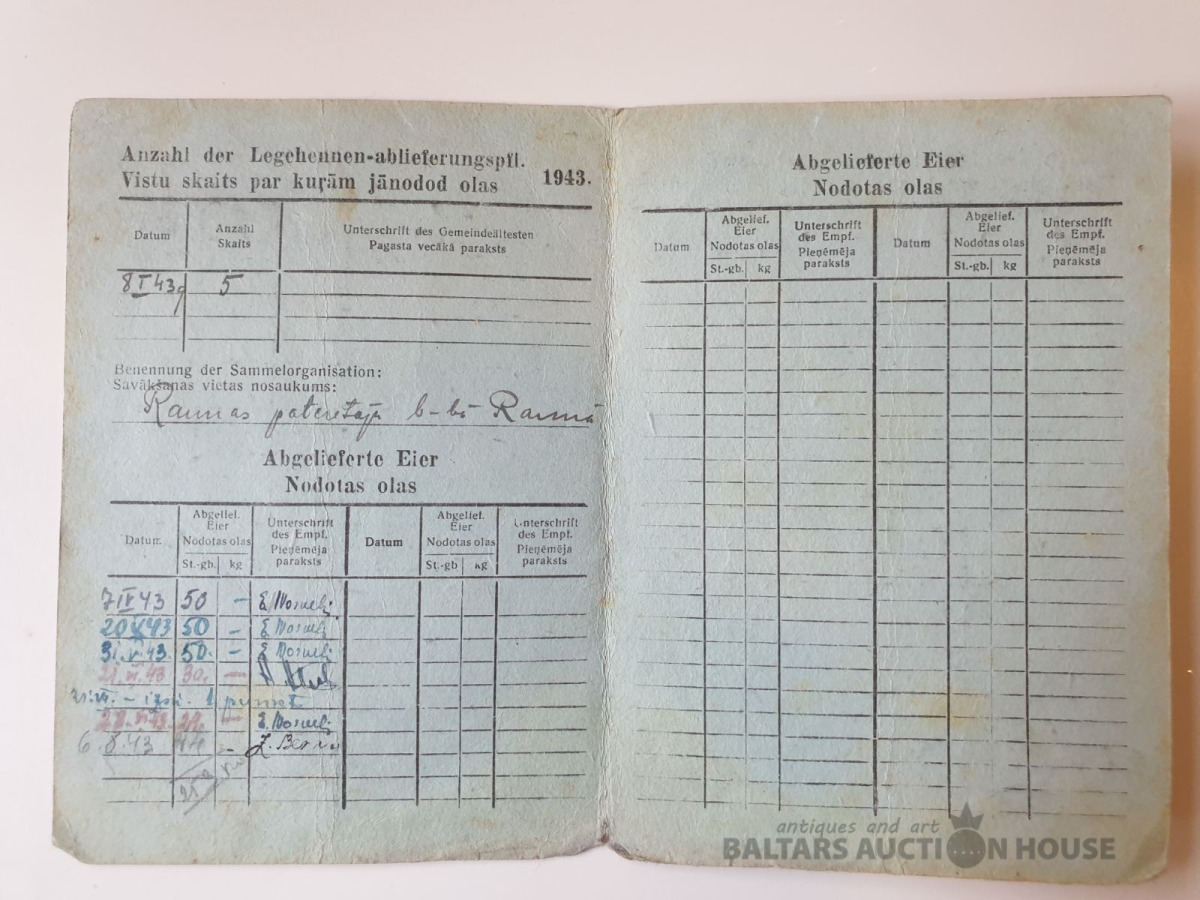 Anzahl der Legehennen-ablieferungspfl.
Vistu skaits par kuŗām jānodod olas 1943.
Datum Anzahl Skaits Unterschrift des Gemeindeältesten Pagasta vecākā paraksts
8 I 43 5
Benennung der Sammelorganisation:
Savākšanas vietas nosaukums:
Raunas patērētāju b-bā Raunā
Abgelieferte Eier
Nodotas olas
Datum Abgelief. Eier Nodotas olas St.-gb. kg Unterschrift des Empf. Pieņēmēja paraksts Datum Abgelief. Eier Nodotas olas St.-gb kg Unterschrift des Empf. Pieņēmēja paraksts
7 IV 43 50 -
20 43 50 -
31. V. 43. 50. -
21. VI. 43 30. -
28. VI. 43. -
6. 8. 43 44 -
Abgelieferte Eier
Nodotas olas
Datum Abgelief. Eier Nodotas olas St.-gb. kg Unterschrift des Empf. Pieņēmēja paraksts Datum Abgelief. Eier Nodotas olas St.-gb. kg Unterschrift des Empf. Pieņēmēja paraksts
antiques and art
BALTARS AUCTION HOUSE